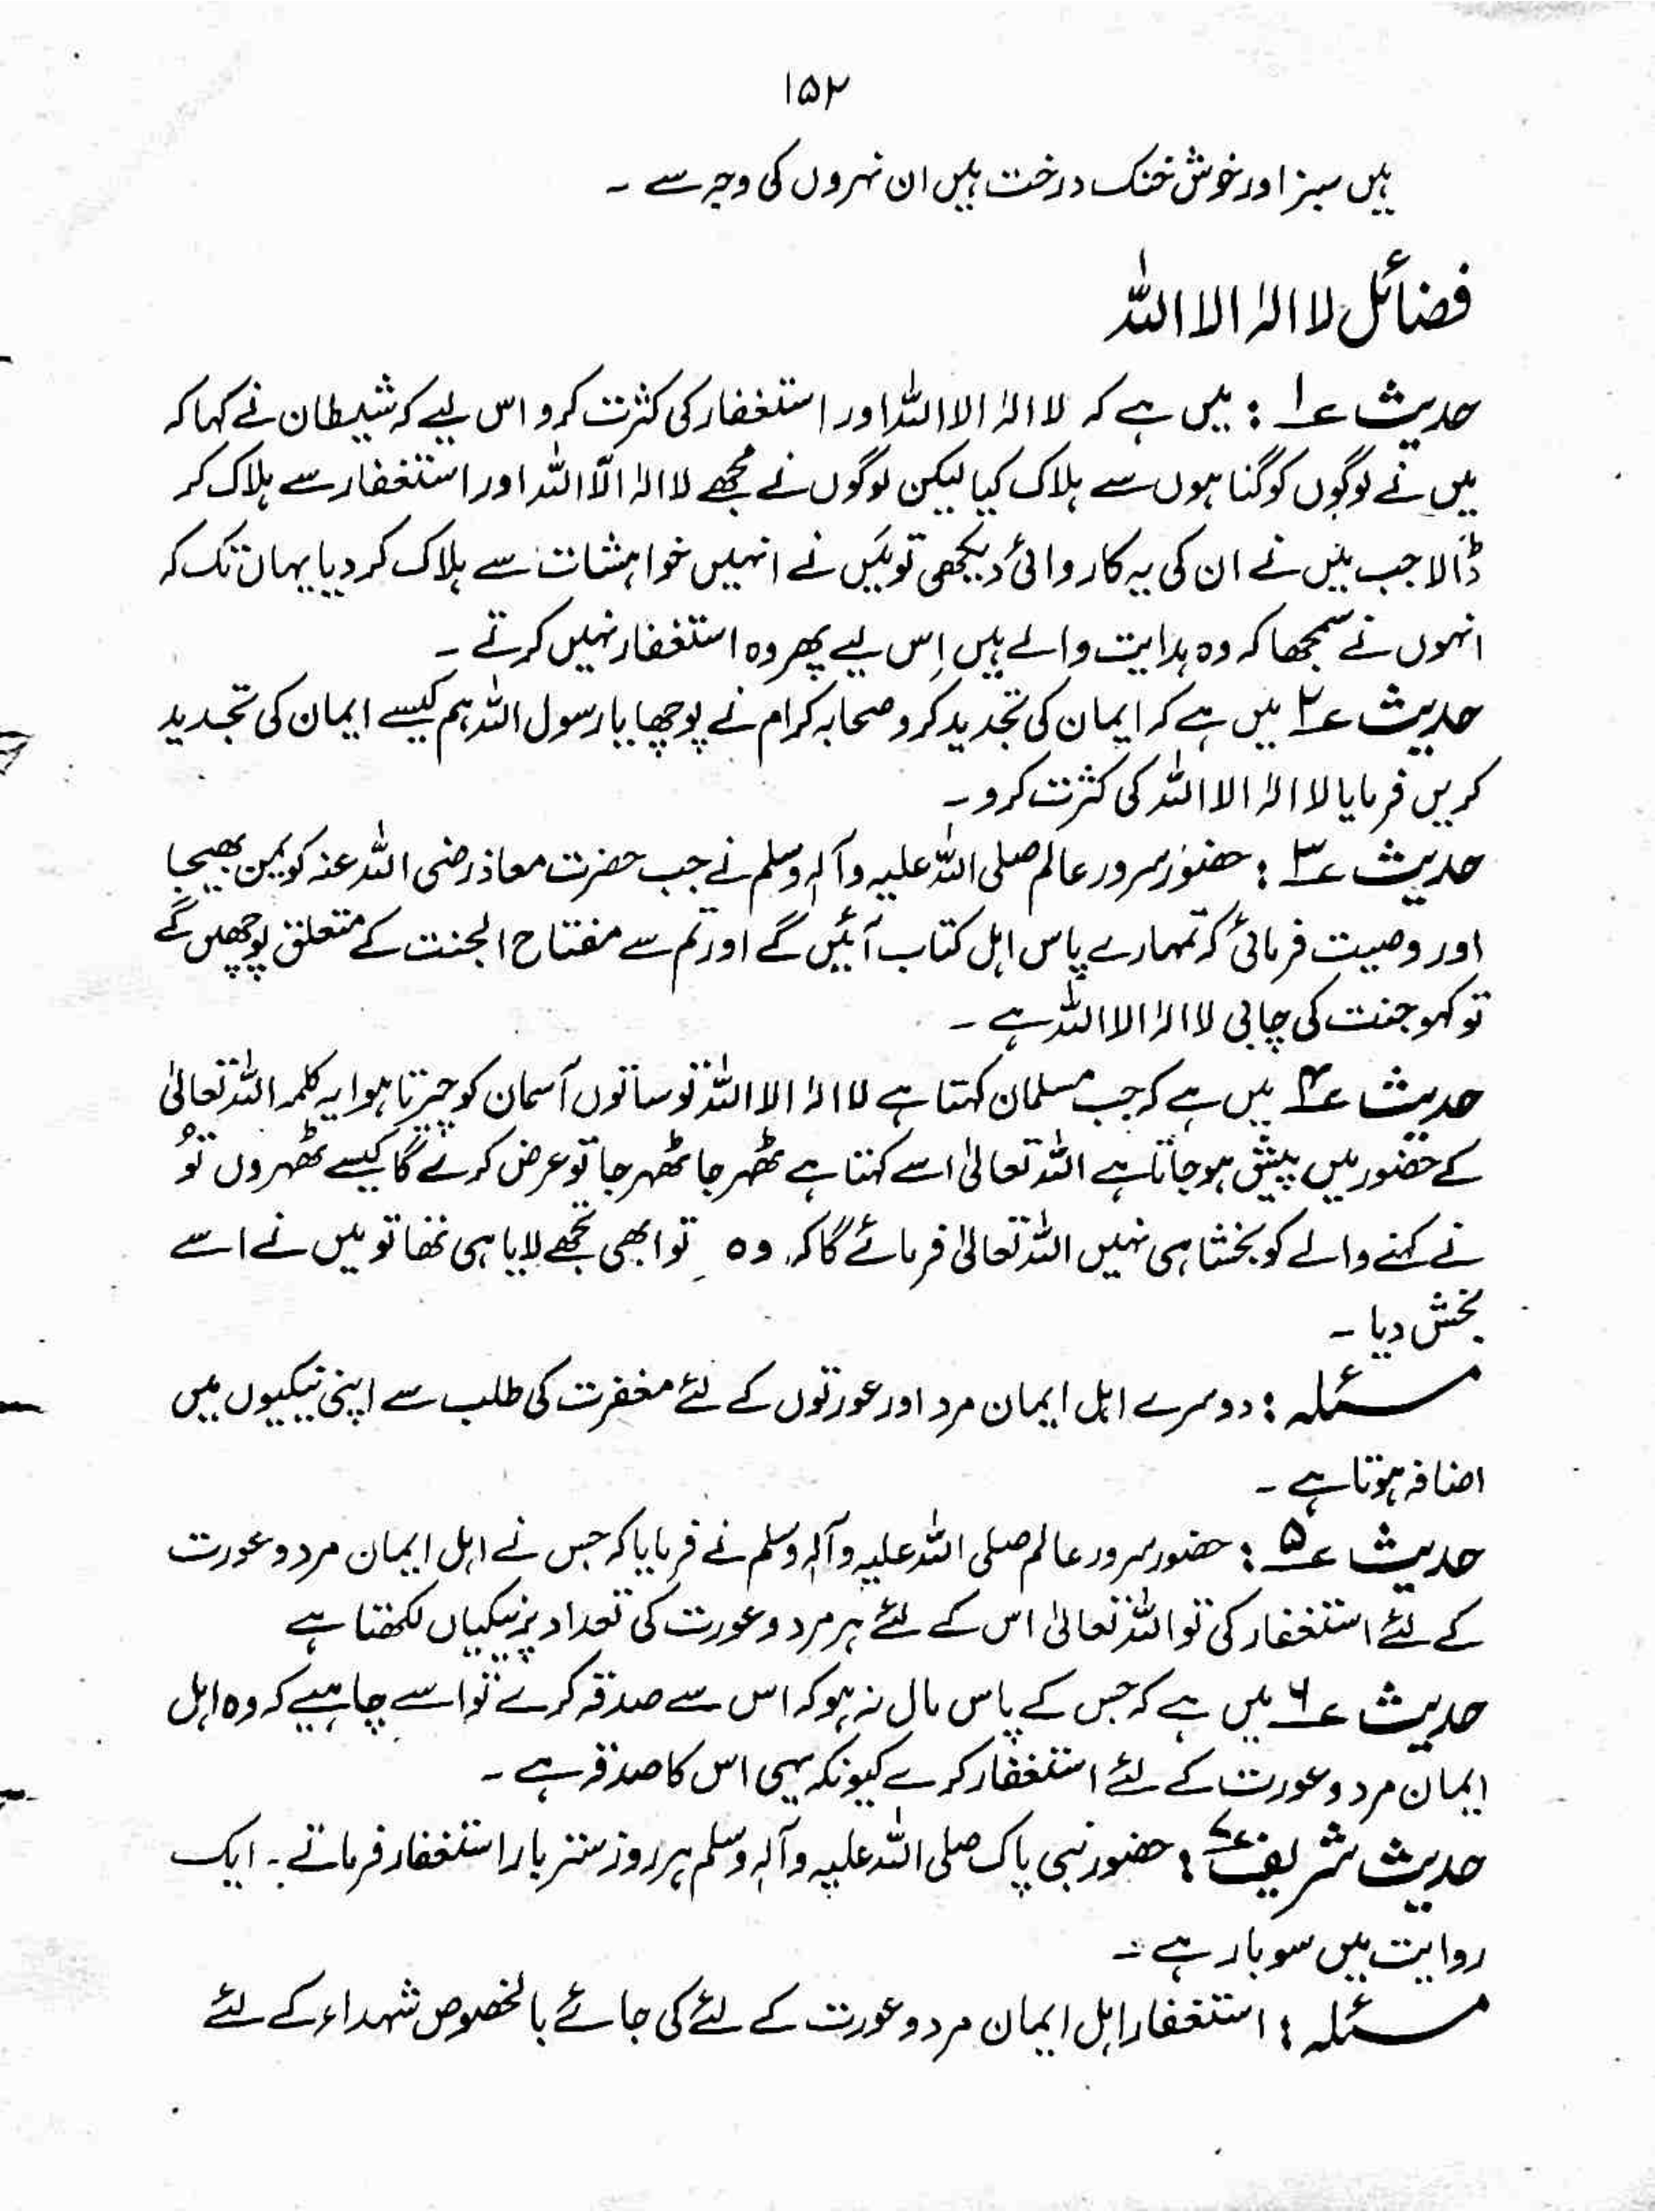 ۱۵۲
ہیں سبز اور خوش خنک درخت ہیں ان نہروں کی وجہ سے ۔
فضائل لا الہٰ الا اللہ
حدیث ؏۱ : میں ہے کہ لا الہٰ الا اللہ اور استغفار کی کثرت کرو اس لیے کہ شیطان نے کہا کہ
میں نے لوگوں کو گناہوں سے ہلاک کیا لیکن لوگوں نے مجھے لا الہٰ الّا اللہ اور استغفار سے ہلاک کر
ڈالا جب میں نے ان کی یہ کاروائی دیکھی تو میَں نے انہیں خواہشات سے ہلاک کر دیا یہاں تک کہ
انہوں نے سمجھا کہ وہ ہدایت والے ہیں اِس لیے پھر وہ استغفار نہیں کرتے ۔
حدیث ؏۲ میں ہے کہ ایمان کی تجدید کرو صحابہ کرام نے پوچھا یا رسول اللہ ہم کیسے ایمان کی تجدید
کریں فرمایا لا الہٰ الا اللہ کی کثرت کرو ۔
حدیث ؏۳ : حضور سرور عالم صلی اللہ علیہ وآلہٖ وسلم نے جب حضرت معاذ رضی اللہ عنہ کو یمن بھیجا
اور وصیت فرمائی کہ تمہارے پاس اہل کتاب آئیں گے اور تم سے مفتاح الجنت کے متعلق پوچھیں گے
تو کہو جنت کی چابی لا الہٰ الا اللہ ہے ۔
حدیث ؏۴ میں ہے کہ جب مسلمان کہتا ہے لا الہٰ الا اللہ تو ساتوں آسمان کو چیرتا ہوا یہ کلمہ اللہ تعالیٰ
کے حضور میں پیش ہو جاتا ہے اللہ تعالیٰ اسے کہتا ہے ٹھہر جا ٹھہر جا تو عرض کرے گا کیسے ٹھہروں تُو
نے کہنے والے کو بخشا ہی نہیں اللہ تعالیٰ فرمائے گا کہ وہ تو ابھی تجھے لایا ہی تھا تو میں نے اسے
بخش دیا ۔
مسئلہ : دوسرے اہل ایمان مرد اور عورتوں کے لئے مغفرت کی طلب سے اپنی نیکیوں میں
اضافہ ہوتا ہے ۔
حدیث ؏۵ : حضور سرور عالم صلی اللہ علیہ وآلہٖ وسلم نے فرمایا کہ جس نے اہل ایمان مرد و عورت
کے لئے استغفار کی تو اللہ تعالیٰ اس کے لئے ہر مرد و عورت کی تعداد پر نیکیاں لکھتا ہے
حدیث ؏۶ میں ہے کہ جس کے پاس مال نہ ہو کہ اس سے صدقہ کرے تو اسے چاہیے کہ وہ اہل
ایمان مرد و عورت کے لئے استغفار کرے کیونکہ یہی اس کا صدقہ ہے ۔
حدیث شریف ؏۷ : حضور نبی پاک صلی اللہ علیہ وآلہٖ وسلم ہر روز ستر بار استغفار فرماتے ۔ ایک
روایت میں سو بار ہے ۔
مسئلہ : استغفار اہل ایمان مرد و عورت کے لئے کی جائے بالخصوص شہداء کے لئے